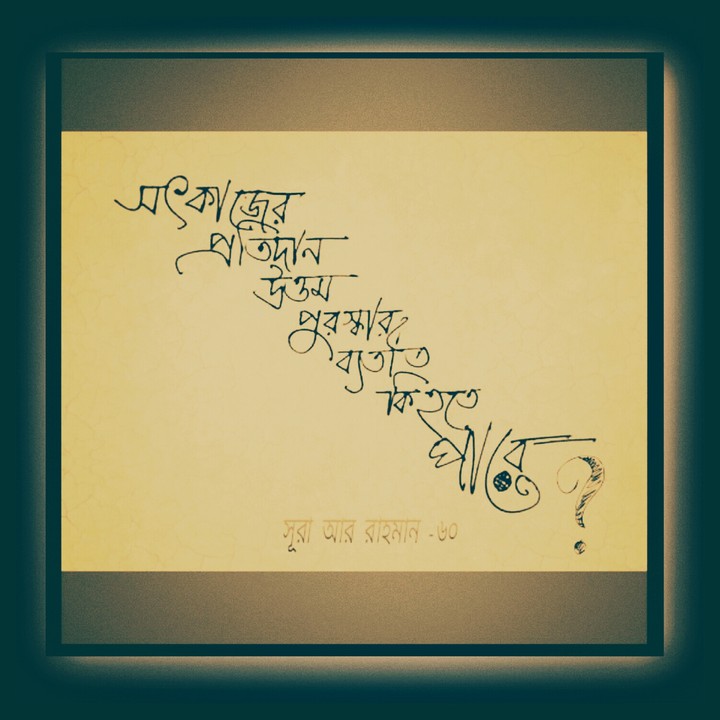 সৎকাজের
প্রতিদান
উত্তম
পুরস্কার
ব্যতীত
কি হতে
পারে ?
সূরা আর রাহমান -৬০